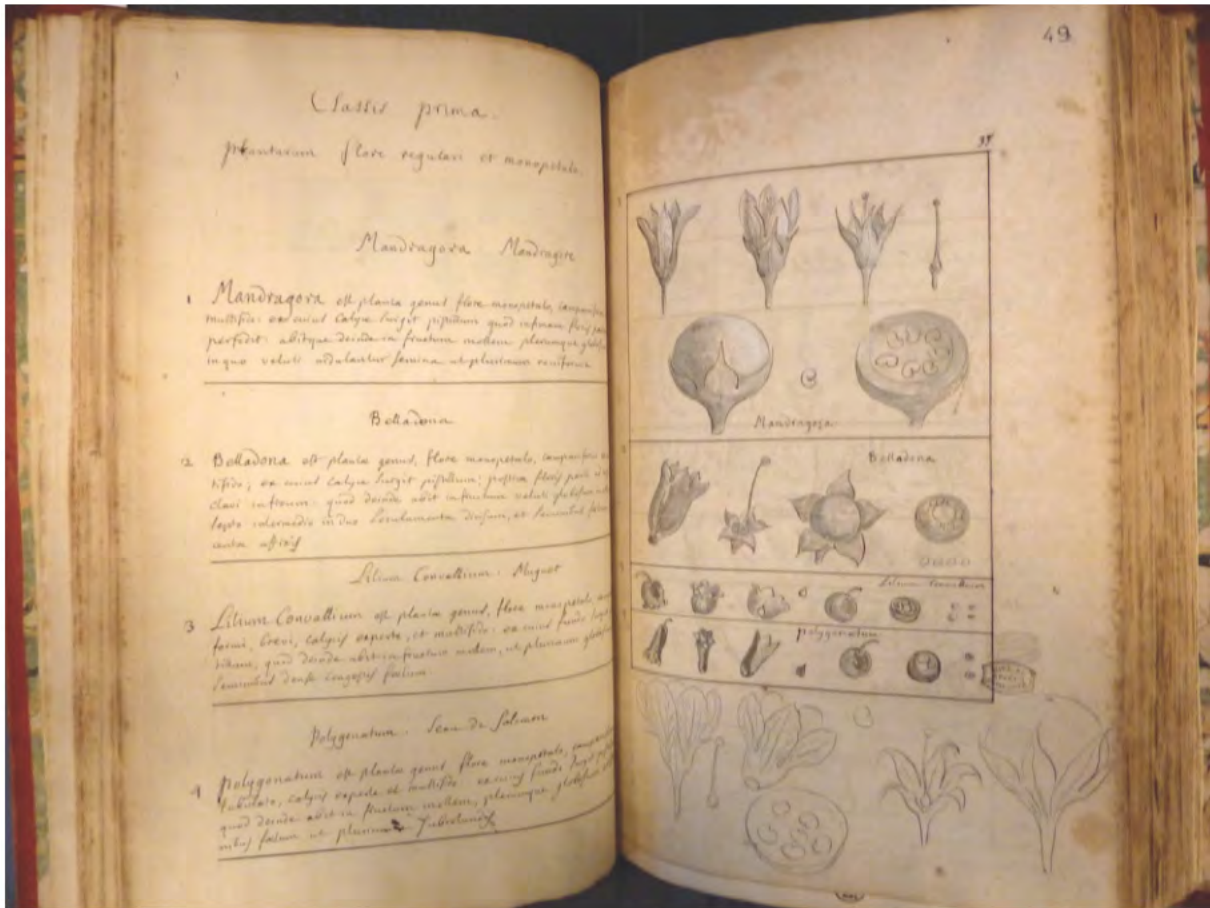 Classis prima.
plantarum flore regulari et monopetalo.
Mandragora Mandragore
1 Mandragora est plantæ genus flore monopetalo,
multifido: ex cuius calyce surgit pistillum quod infimam floris
perfodit: abitque deinde in fructum mollem plerumque
in quo veluti nidulantur semina ut plurimum reniformia
Belladona
2 Belladona est plantæ genus, flore monopetalo,
ex cuius calyce surgit pistillum; posticæ floris parti
clavi infixum: quod deinde abit in fructum veluti globosum
septo intermedio in duo loculamenta divisum, et seminibus
Lilium Convallium. Muguet
3 Lilium Convallium est plantæ genus, flore monopetalo,
formi, brevi, calycis experte, et multifido: ex cuius fundo surgit
quod deinde abit in fructum mollem, ut plurimum
seminibus dense congestis fœtum.
Polygonatum. Seau de Salomon
4 Polygonatum est plantæ genus flore monopetalo,
tubulato, calycis experte et multifido: ex cuius fundo surgit
quod deinde abit in fructum mollem, plerumque globosum
fœtum ut plurimum
49
Mandragora
Belladona
Lilium Convallium
polygonatum